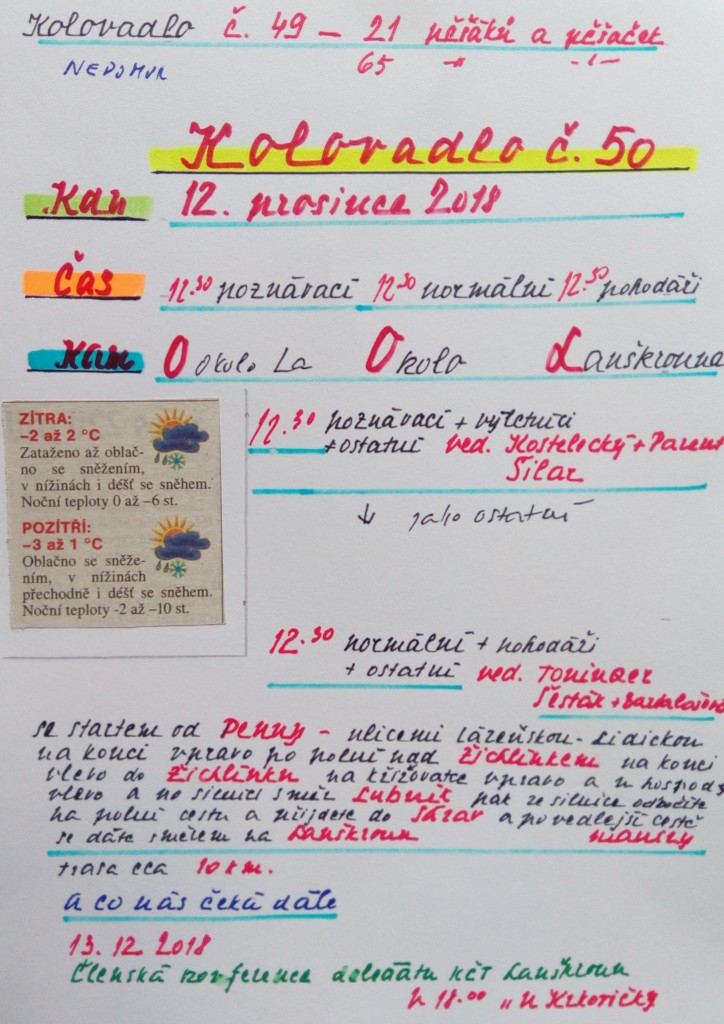 Kolovadlo č. 49 – 21 pěšáků a pěšaček
NEDOMUK 65 –"– –"–
Kolovadlo č. 50
Kdy 12. prosince 2018
Čas 12.30 poznávací 12.30 normální 12.30 pohodáři
Kam O okolo La Okolo Lanškrouna
12.30 poznávací + výletníci
+ ostatní ved. Kostelecký +
Silar
↓ jako ostatní
ZÍTRA:
–2 až 2 °C
Zataženo až oblač-
no se sněžením,
v nížinách i déšť se sněhem.
Noční teploty 0 až –6 st.
POZÍTŘÍ:
–3 až 1 °C
Oblačno se sněže-
ním, v nížinách
přechodně i déšť se sněhem.
Noční teploty -2 až –10 st.
12.30 normální + pohodáři
+ ostatní ved.
Šesták +
se startem od Penny – ulicemi Lázeňskou - Lidickou
na konci vpravo po polní nad Žichlínkem na konci
vlevo do Žichlínku na křižovatce vpravo a u hospody
vlevo a po silnici směr Lubník pak ze silnice odbočíte
na polní cestu a přijdete do Sázav a po vedlejší cestě
se dáte směrem na Lanškroun
trasa cca 10 km.
a co nás čeká dále
13. 12. 2018
Členská konference KČT Lanškroun
v 18.00 „u